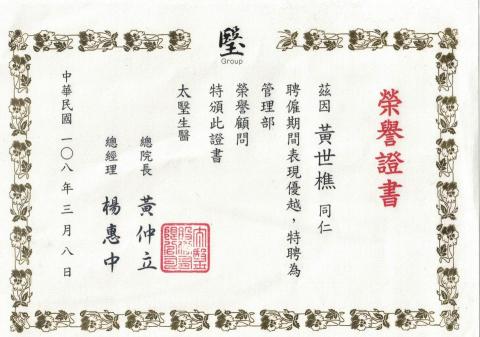 毉
Group
榮譽證書
茲因 黃世樵 同仁
聘僱期間表現優越，特聘為
管理部
榮譽顧問
特頒此證書
太毉生醫
總院長 黃仲立
總經理 楊惠中
中華民國一〇八年三月八日